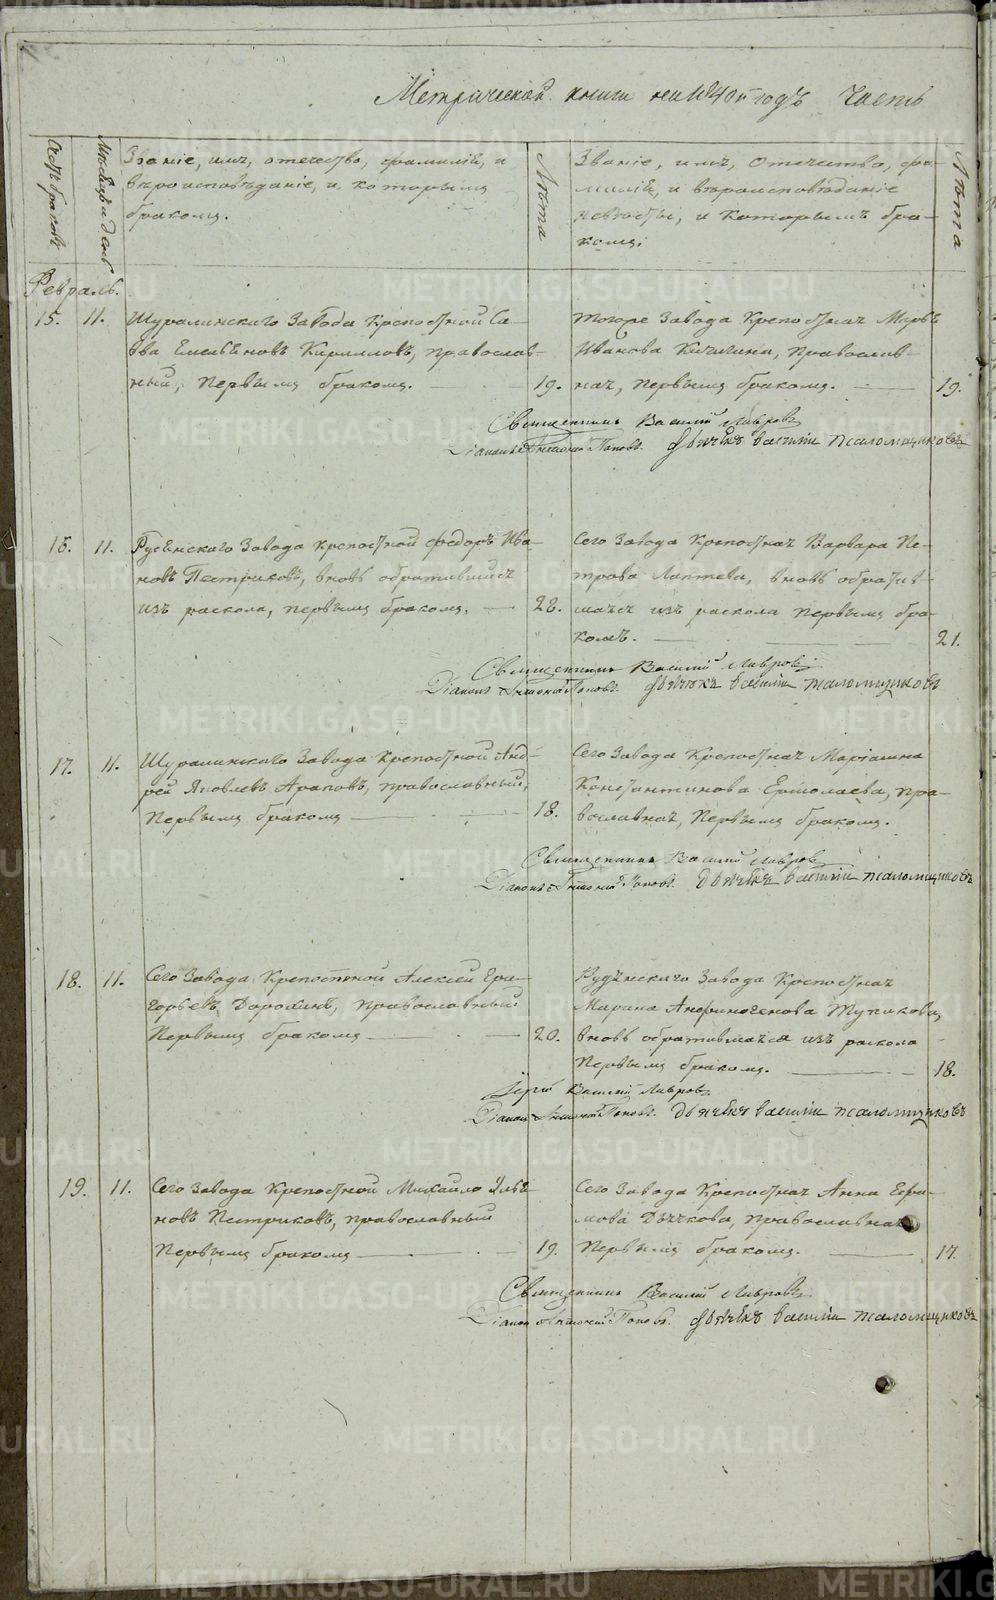 Метрической книги на 1840й годъ часть
Счетъ браковъ
Мѣсяцъ и день
Званіе, имя, отечество, фамилія, и
вѣроисповѣданіе, и, которымъ
бракомъ.
Лѣта
Званіе, имя, отечество, фа-
милія, и вѣроисповѣданіе
невѣсты, и которымъ бра-
комъ;
Лѣта
Февраль.
15. 11. Шуралинскаго Завода крепостной Са-
ва Емельяновъ Кирилловъ, православ-
ный, первымъ бракомъ. 19.
Тогоже Завода Крепостная Марья
Иванова Кичигина, православ-
ная, первымъ бракомъ. 19.
Священникъ Василій Лавровъ
Діаконъ Поповъ. Дьячекъ Василiи Псаломщиковъ
16. 11. Рудянскаго Завода крепостной Федоръ Ива-
новъ Пестриковъ, вновь обратившійся
изъ раскола, первымъ бракомъ. 22.
Сего Завода Крепостная Варвара Пе-
трова Лаптева, вновь обратив-
шаяся изъ раскола первымъ бра-
комъ. 21.
Священникъ Василій Лавровъ
Діаконъ Поповъ. Дьячекъ Василiи Псаломщиковъ
17. 11. Шуралинскаго Завода крепостной Анд-
рей Яковлевъ Араповъ, православный,
Первымъ бракомъ 18.
Сего Завода Крепостная Маріамна
Константинова Ермолаева, пра-
вославная, Первымъ бракомъ.
Священникъ Василій Лавровъ
Діаконъ Поповъ. Дьячекъ Василiи Псаломщиковъ
18. 11. Сего Завода Крепостной Алексѣй Гри-
горьевъ Дорохинъ, православный
Первымъ бракомъ 20.
Рудянскаго Завода Крепостная
Марина Анфиногенова Тупикова,
вновь обратившаяся изъ раскола
Первымъ бракомъ. 18.
Іерей Василій Лавровъ.
Діаконъ Поповъ. Дьячекъ Василiи Псаломщиковъ
19. 11. Сего Завода Крепостной Михайло Улья-
новъ Пестриковъ, православный
Первымъ бракомъ 19.
Сего Завода Крепостная Анна Ефи-
мова Дьячкова, православная
Первымъ бракомъ. 17.
Священникъ Василій Лавровъ
Діаконъ Поповъ. Дьячекъ Василiи Псаломщиковъ
METRIKI.GASO-URAL.RU